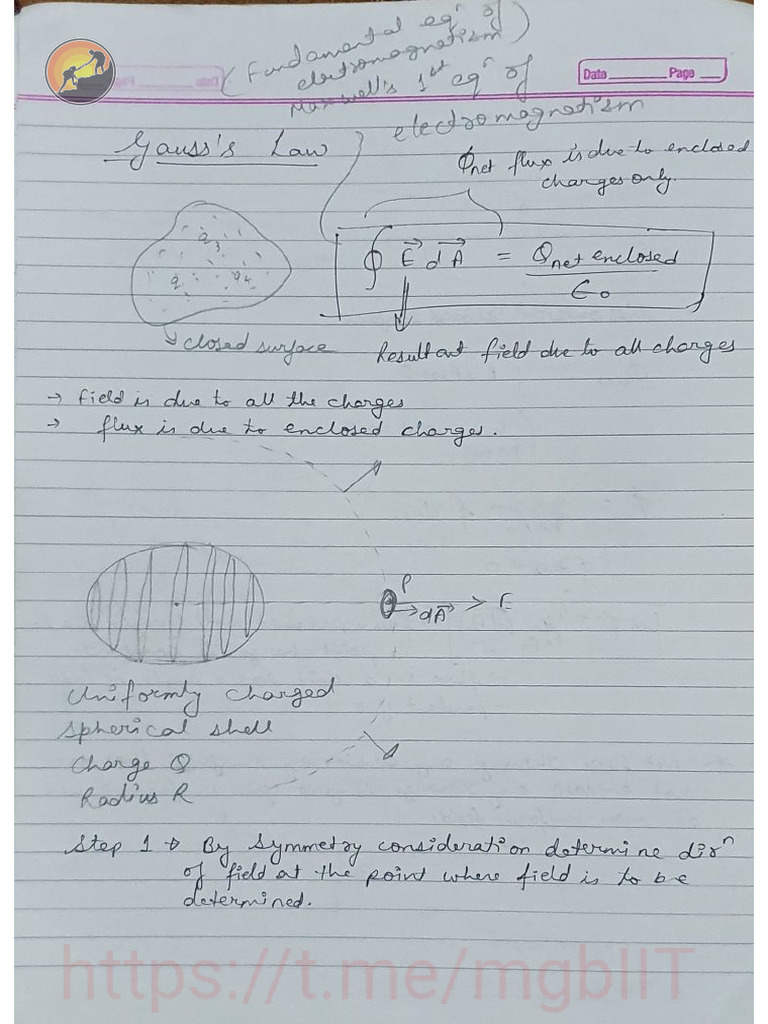 (Fundamental eqⁿ of
electromagnetism)
Maxwell's 1st eqⁿ of
electromagnetism
Date Page
Gauss's Law
Φnet flux is due to enclosed
charges only.
q3
q q4
∮ E⃗ dA⃗ = Qnet enclosed / ϵ0
closed surface
Resultant field due to all charges
→ field is due to all the charges
→ flux is due to enclosed charges.
P
dA⃗ > E
Uniformly charged
Spherical shell
Charge Q
Radius R
Step 1 → By Symmetry consideration determine dirⁿ
of field at the point where field is to be
determined.
https://t.me/mgbIIT